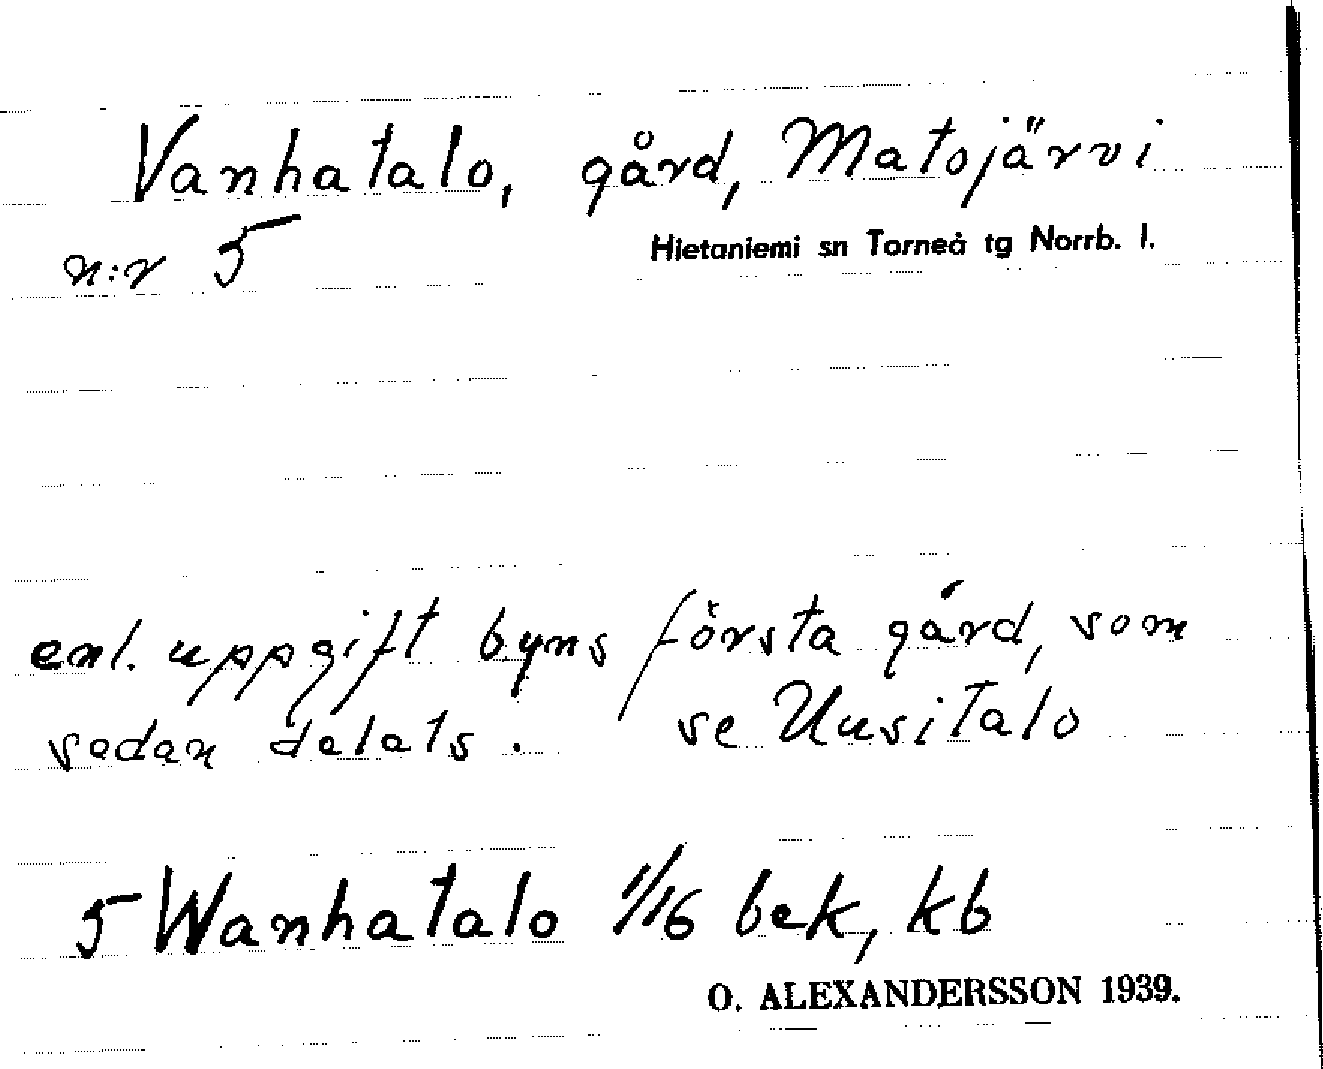 Vanhatalo, gård, Matojärvi
n:r 5
Hietaniemi sn Torneå tg Norrb. l.
enl. uppgift byns första gård, som
sedan delats. se Uusitalo
5 Wanhatalo 1/16 bek, kb
O. ALEXANDERSSON 1939.